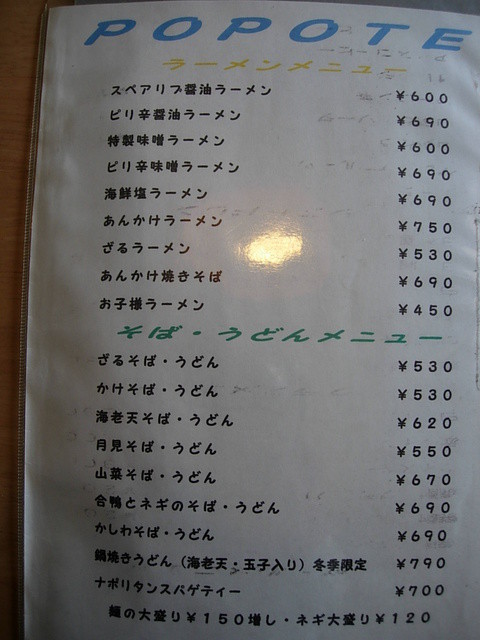 POPOTE
ラーメンメニュー
スペアリブ醤油ラーメン ￥600
ピリ辛醤油ラーメン ￥690
特製味噌ラーメン ￥600
ピリ辛味噌ラーメン ￥690
海鮮塩ラーメン ￥690
あんかけラーメン ￥750
ざるラーメン ￥530
あんかけ焼きそば ￥690
お子様ラーメン ￥450
そば・うどんメニュー
ざるそば・うどん ￥530
かけそば・うどん ￥530
海老天そば・うどん ￥620
月見そば・うどん ￥550
山菜そば・うどん ￥670
合鴨とネギのそば・うどん ￥690
かしわそば・うどん ￥690
鍋焼きうどん（海老天・玉子入り）冬季限定 ￥790
ナポリタンスパゲティー ￥700
麺の大盛り￥150増し・ネギ大盛り￥120